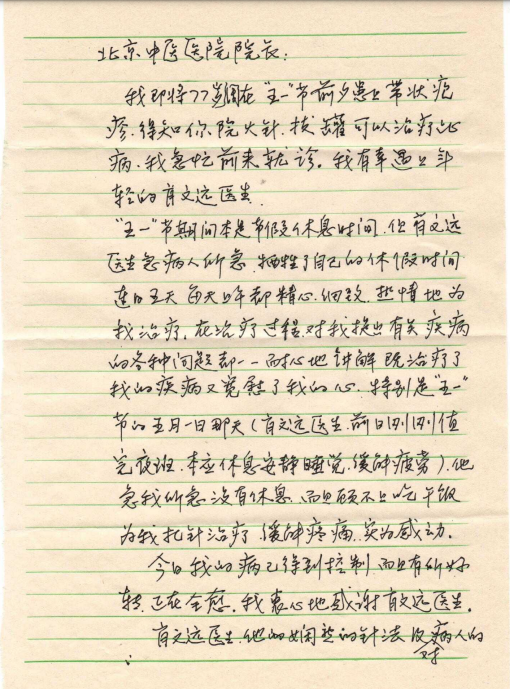 北京中医医院院长：
我即将77岁，因在“五一”节前夕患上带状疱
疹，得知你院火针、拔罐可以治疗此
病，我急忙前来就诊。我有幸遇上年
轻的肖文远医生。
“五一”节期间本是节假休息时间，但肖文远
医生急病人所急，牺牲了自己的休假时间
连日五天每天上午都精心、细致、热情地为
我治疗，在治疗过程对我提出有关疾病
的各种问题都一一耐心地讲解既治疗了
我的疾病又宽慰了我的心。特别是“五一”
节的五月一日那天（肖文远医生前日刚刚值
完夜班，本应休息安静睡觉，缓解疲劳），他
急我所急没有休息，而且顾不上吃午饭
为我扎针治疗，缓解疼痛，实为感动。
今日我的病已得到控制，而且有所好
转，正在全愈。我衷心地感谢肖文远医生。
肖文远医生，他的娴熟的针法及对病人的